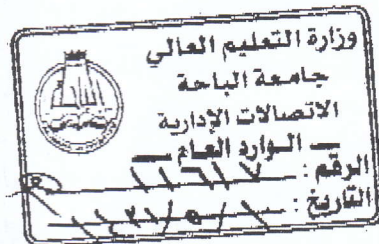 وزارة التعليم العالي
جامعة الباحة
الاتصالات الإدارية
ــ الـوارد العـام ــ
الرقم :
التاريخ :